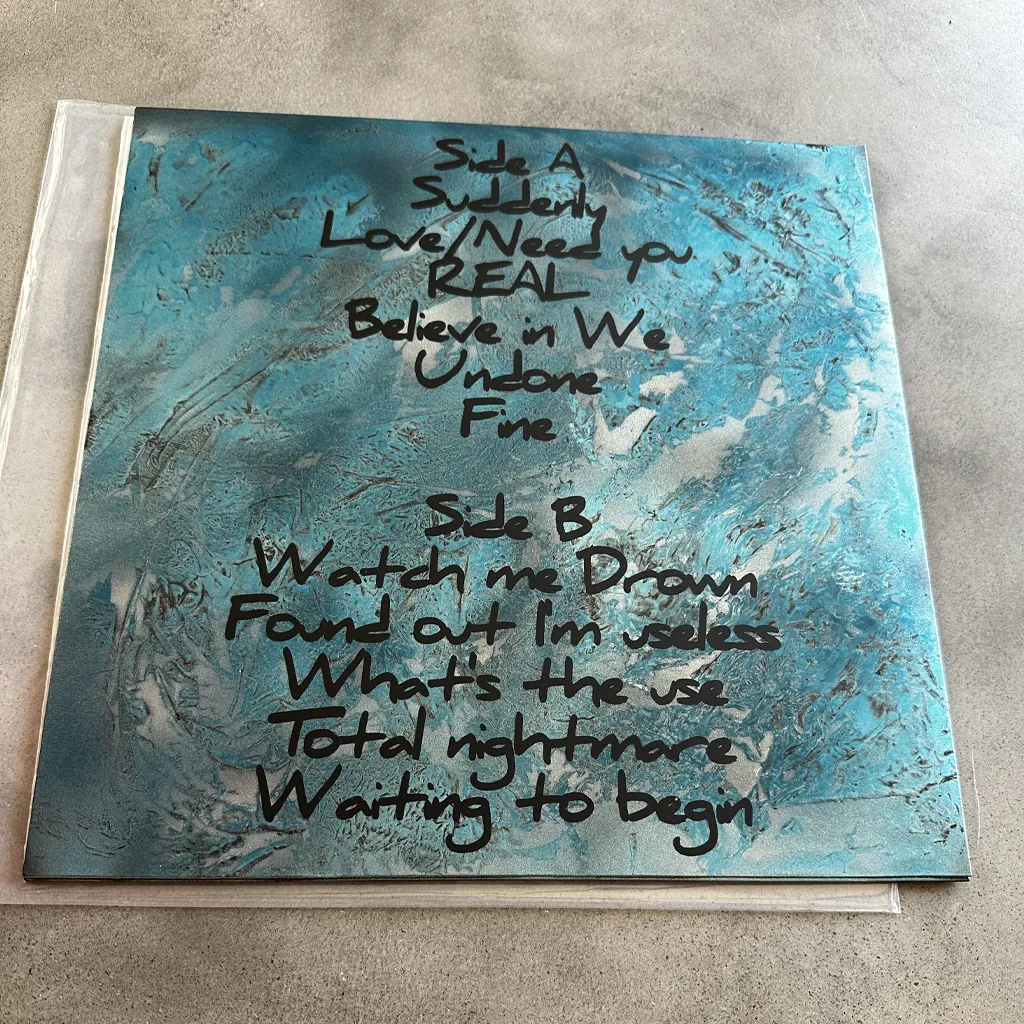 Side A
Suddenly
Love/Need you
REAL
Believe in We
Undone
Fine
Side B
Watch me Drown
Found out I'm useless
What's the use
Total nightmare
Waiting to begin